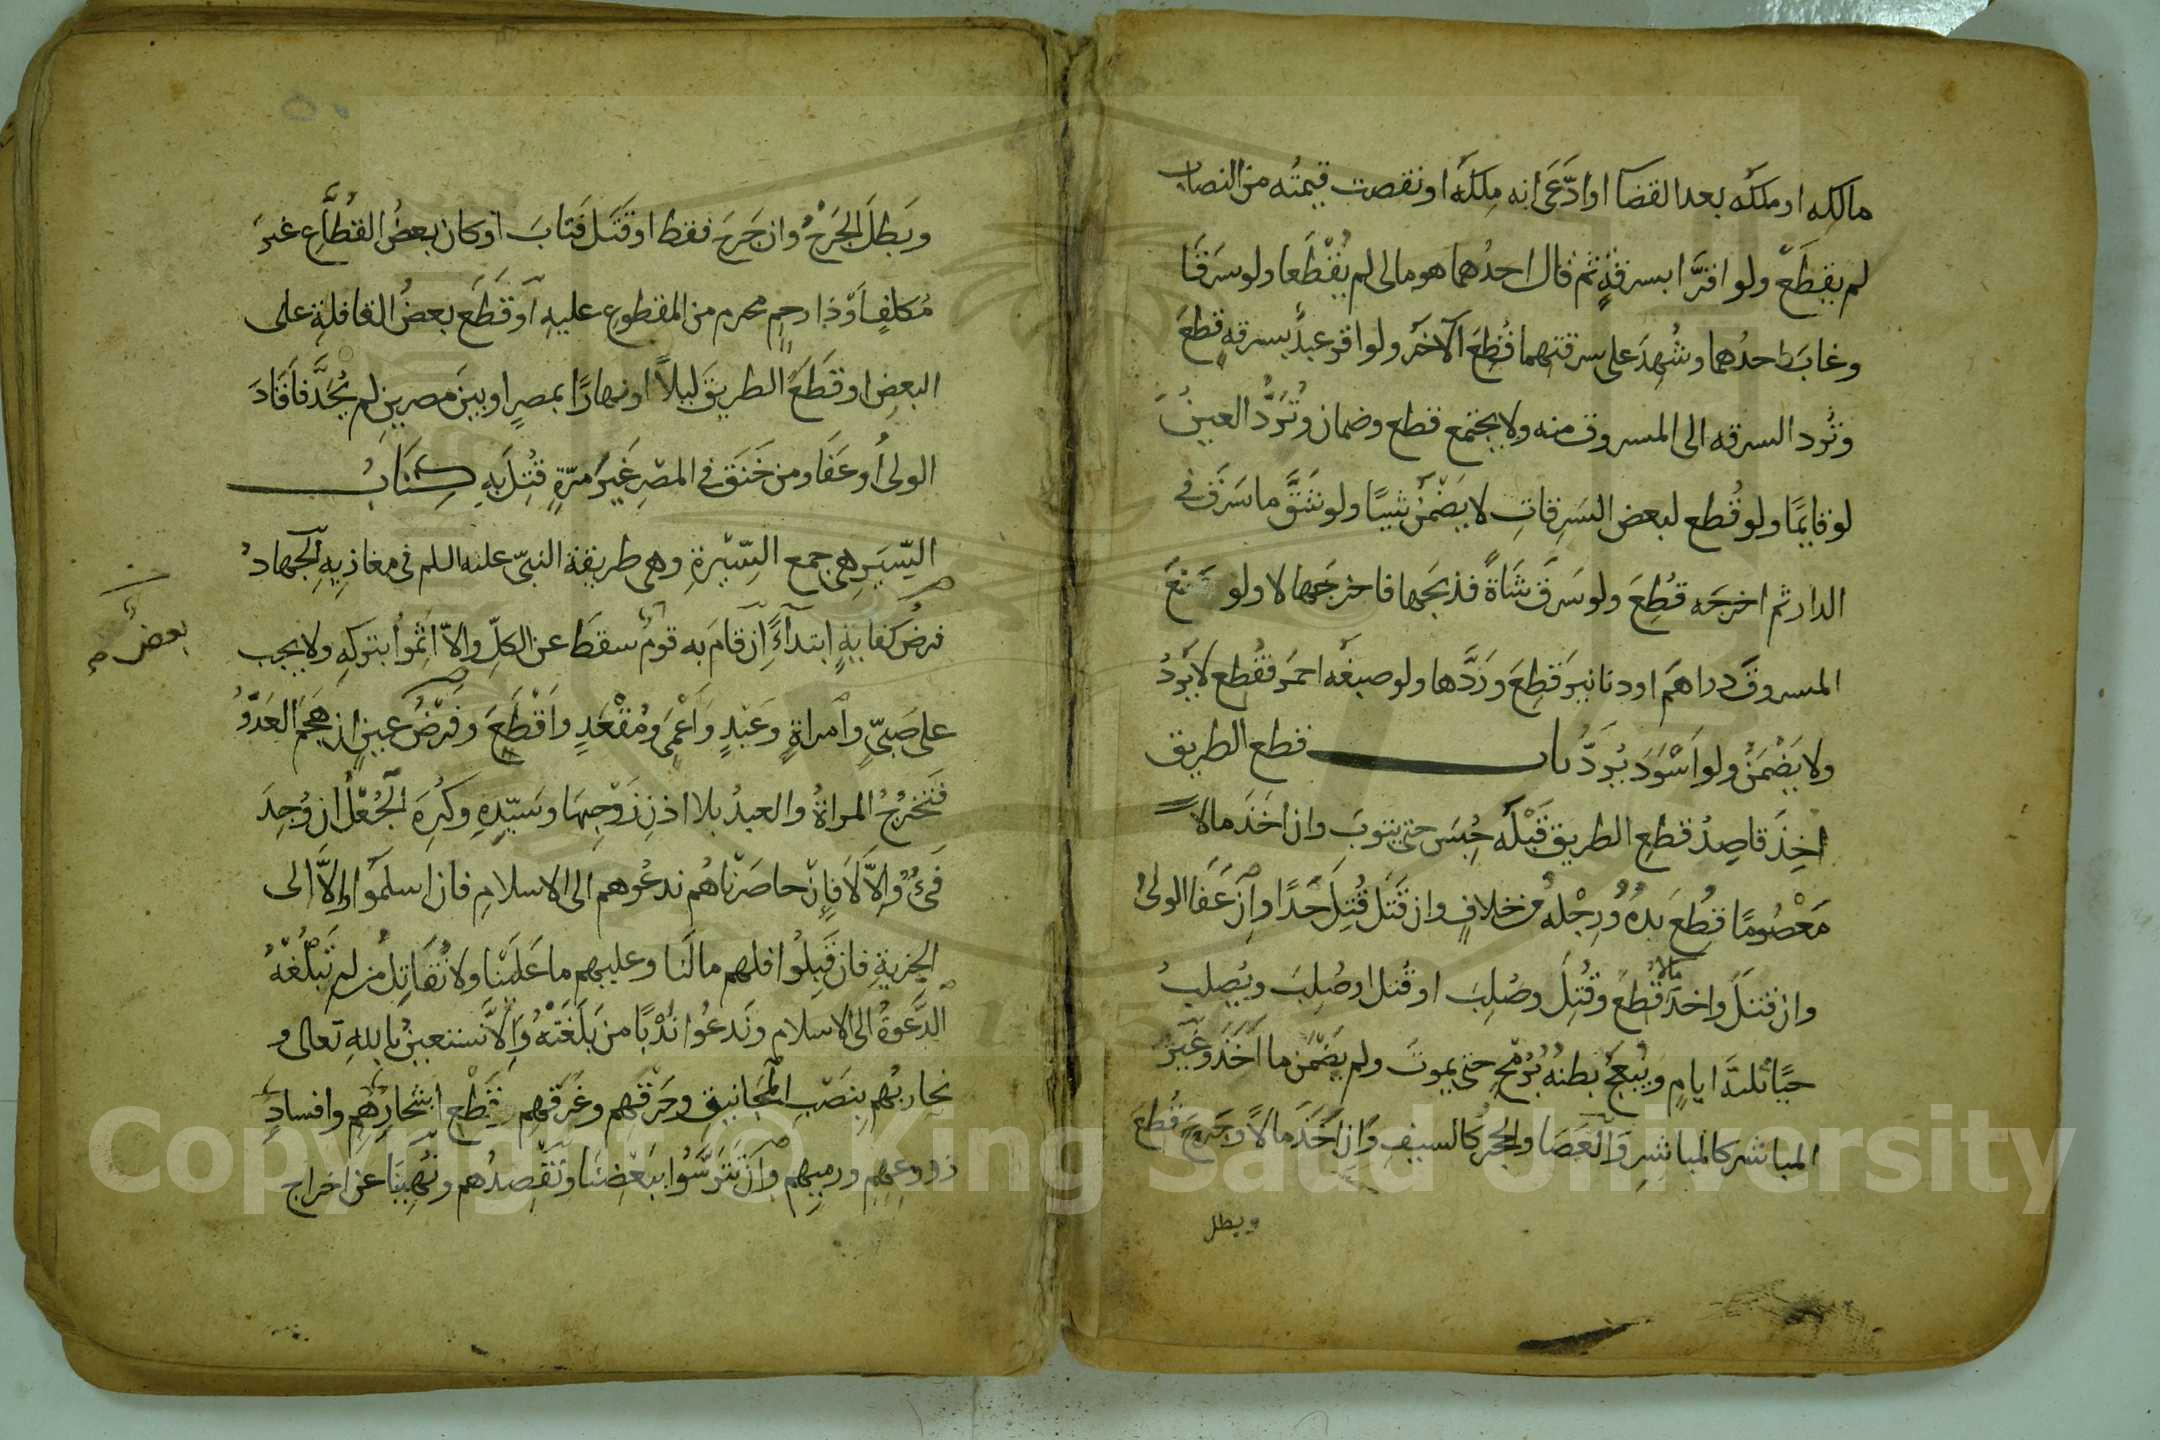 مالكه او ملكه بعد القضآ او ادَّعَى انه مِلكُه او نقصت قيمتُه من النصاب
لم يقطَعْ ولو اقرَّا بسرقةٍ ثم قال احدُهما هو مالى لم يُقْطَعا ولو سَرَقَا
وغابَ احدُهما وشُهِدَ على سرقتهما قُطِعَ الآخَرُ ولو اقر عبدٌ بسرقةٍ قُطِعَ
وتُرد السرقه الى المسروق منه ولا يجتمع قطع وضمان وتُرَدُّ العينُ
لو قايمًا ولو قُطع لبعض السَرِقاتِ لا يَضْمَنُ شيئًا ولو شَقَّ ما سَرَقَ فى
الدار ثم اخرجَه قُطِعَ ولو سَرَقَ شَاةً فذبَحَها فاخرَجَها لا ولو صَنَعَ
المسروقَ دراهمَ او دنانيرَ قُطِعَ ورَدَّها ولو صبغَه احمَرَ فقُطع لا يَردُّ
ولا يَضْمَنُ ولو اَسْوَدَ يُرَدُّ باب قطع الطريق
اُخِذَ قاصِدُ قطعِ الطريق قَبْلَه حُبِسَ حتى يتوبَ وان اخَذَ مالاً
مَعْصُومًا قُطِعَ يدُهُ ورِجْلُهُ من خلافٍ وان قَتَلَ قُتِلَ حَدًا واِنْ عَفَا الولىُ
وان قتلَ واخذَ مالا قُطِعَ وقُتِلَ وصُلِبَ او قُتل او صُلِبَ ويُصلبُ
حيًا ثلثةَ ايامٍ ويُبْعَجُ بطنُهُ بُرُمْحٍ حتى يموتَ ولم يَضْمَن ما اَخَذَ وغَيْرُ
المباشر كالمباشِرِ وَالعَصَا والحجرُ كالسيفِ وَاِن اَخَذَ مالاً وجَرَحَ قُطعَ
ويبطل
وبَطلَ الجَرْحُ وان جَرَحَ فقط او قَتَلَ فَتابَ او كان بعضُ القُطَّاعِ غيرَ
مُكلفٍ اَوْ ذا رحِمٍ محرم من المقطوع عليهِ اَو قَطَعَ بعضُ القافلةِ على
البعضِ او قَطَعَ الطريقَ ليلاً او نهارًا بمصرٍ او بين مصرينِ لم يُحَدَّ فاَقَادَ
الولى اُو عَفَا ومن خَنَقَ فى المصْرِ غَيرَ مرّةٍ قُتِلَ بهِ كِتَابُ
السِّيَرِ هى جمع السِّيْرةِ وهى طريقة النبىّ عليه السلم فى مغازيهِ الجهادُ
فرضُ كفايةٍ ابتدآءً اِن قامَ به قومٌ سقطَ عن الكلِّ والاَّ اَثِمُوا بتركهِ ولا يجب
بعض صح
على صَبىّ وامراةٍ وعَبْدٍ وَاَعْمَى ومُقْعَدٍ واَقْطَعَ وفَرْضُ عينٍ اِن هَجَمَ العَدُوُّ
فَتَخرُجُ المراةُ والعبدُ بلا اذنِ زَوْجِهَا وسَيّدِهِ وكُرِهَ الْجُعْلُ ان وُجِدَ
فَىْءٌ واِلاَّ لاَ فاِنْ حاصَرْناهُم ندعُوهم الى الاسلامِ فان اسلَمُوا واِلاَّ الى
الجزيةِ فان قَبِلُوا فلهم مالَنا وعليهم ما عَلَيْنا ولا نُقَاتِلُ من لم تَبْلُغْهُ
الدَّعوةُ الى الاسلامِ ونَدعُوا نَدْبًا من بَلَغَتْهُ وَاِلاَّ نستعينُ بالله تعالى و
نحاربُهم بِنَصْبِ المجَانيقِ وحَرْقهم وغَرَقهم وقَطْعِ اشجارِهِم وافسادِ
زروعِهِم ورميهِم واِنْ تَترَّسُوا بِبَعْضِنَا ونَقْصِدُهم ونُهِينَا عن اخراج